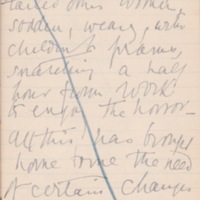 women,
sodden, weary, with
children & prams,
snatching a half
hour from work
to enjoy the horror—
all this, has brought
home to me the need
of certain changes